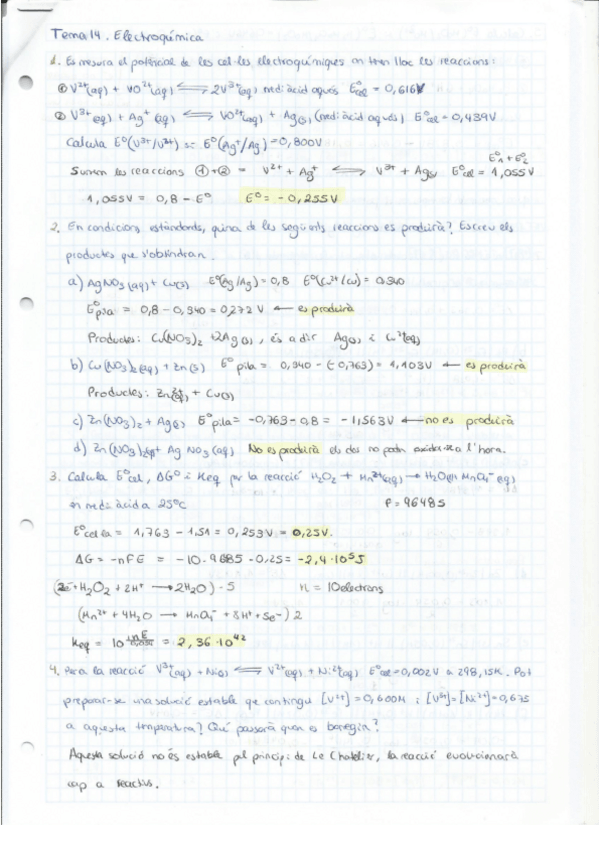 Tema 14. Electroquímica
1. Es mesura el potencial de les cel·les electroquímiques on tren lloc les reaccions:
① V²⁺(aq) + VO²⁺(aq) ⇌ 2V³⁺(aq) medi àcid aquós E°cel = 0,616V
② V³⁺(aq) + Ag⁺(aq) ⇌ VO²⁺(aq) + Ag(s) (medi àcid aquós) E°cel = 0,439V
Calcula E°(V³⁺/V²⁺) si E°(Ag⁺/Ag) = 0,800V
E°₁ + E°₂
Sumen les reaccions ① + ② = V²⁺ + Ag⁺ ⇌ V³⁺ + Ag(s) E°cel = 1,055V
1,055V = 0,8 - E° E° = -0,255V
2. En condicions estàndards, quina de les següents reaccions es produirà? Escriu els
productes que s'obtindran.
a) AgNO₃(aq) + Cu(s) E°(Ag/Ag) = 0,8 E°(Cu²⁺/Cu) = 0.340
E°pila = 0,8 - 0,340 = 0,272 V ← es produirà
Productes: Cu(NO₃)₂ + 2Ag(s), és a dir Ag(s) i Cu²⁺(aq)
b) Cu(NO₃)₂(aq) + Zn(s) E° pila = 0,340 - (-0,763) = 1,103V ← es produirà
Productes: Zn²⁺(aq) + Cu(s)
c) Zn(NO₃)₂ + Ag(s) E°pila = -0,763 - 0,8 = -1,563V ← no es produirà
d) Zn(NO₃)₂(aq) + AgNO₃(aq) No es produirà els dos no poden oxidar-se a l'hora.
3. Calcula E°cel, ΔG° i Keq per la reacció H₂O₂ + Mn²⁺(aq) → H₂O(l) MnO₄⁻(aq)
en medi àcid a 25°C F = 96485
E°cel·la = 1,763 - 1,51 = 0,253V = 0,25V.
ΔG = -nFE = -10·9685·0,25 = -2,4·10⁵J
(2e⁻ + H₂O₂ + 2H⁺ → 2H₂O)·5 n = 10 electrons
(Mn²⁺ + 4H₂O → MnO₄⁻ + 8H⁺ + 5e⁻) 2
Keq = 10^(nE/0,0592) = 2,36·10⁴²
4. Para la reacció V³⁺(aq) + Ni(s) ⇌ V²⁺(aq) + Ni²⁺(aq) E°cel = 0,002V a 298,15K. Pot
preparar-se una solució estable que contingui [V²⁺] = 0,600M i [V³⁺] = [Ni²⁺] = 0,675
a aquesta temperatura? Què passarà quan es barregin?
Aquesta solució no és estable pel principi de Le Chatelier, la reacció evolucionarà
cap a reactius.